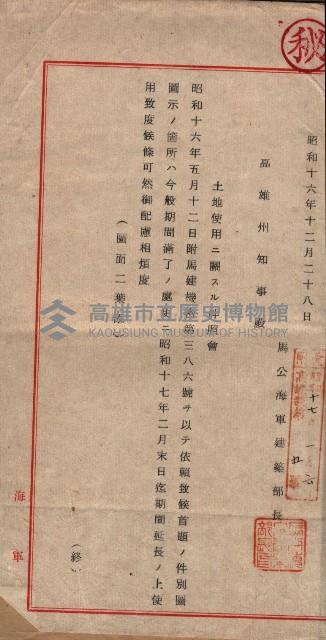 秘
昭和十六年十二月二十八日
馬公海軍建築部長
高雄州知事殿
土地使用ニ關スル 照會
昭和十六年五月十二日附馬建機密第三八六號ヲ以テ依賴致候首題ノ件別圖
圖示ノ箇所ハ今般期間滿了ノ處更ニ昭和十七年二月末日迄期間延長ノ上使
用致度候條可然御配慮相煩度
(圖面二葉添)
(終)
海軍
高雄市立歷史博物館
KAOHSIUNG MUSEUM OF HISTORY